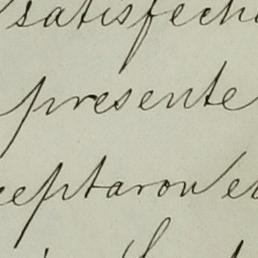 satisfech
presente
ceptaron e